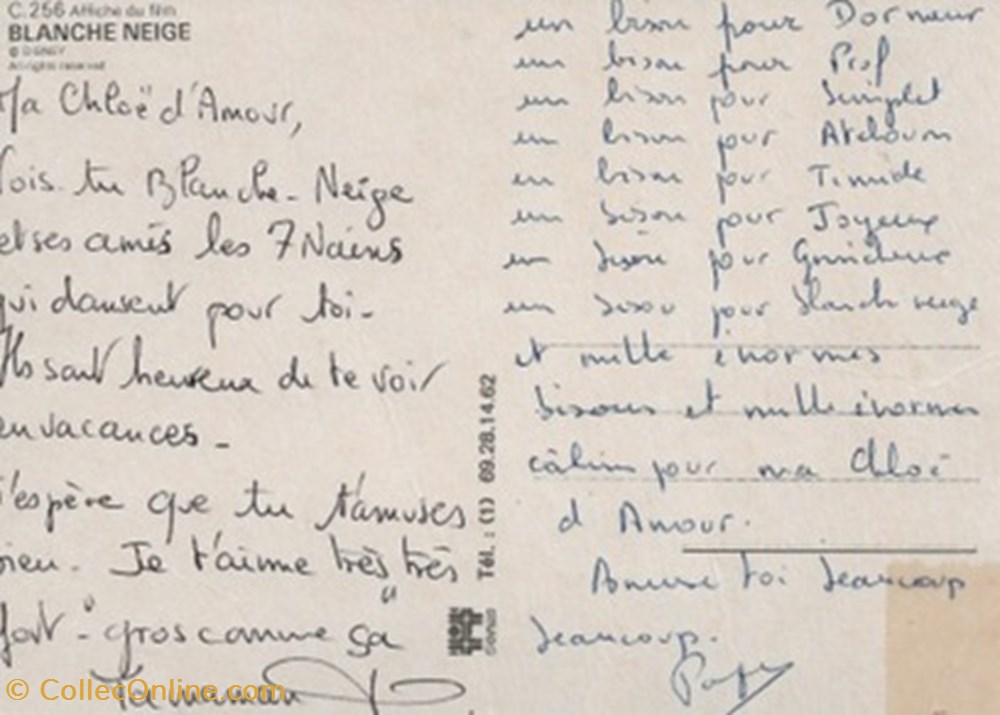 C.256 Affiche du film
BLANCHE NEIGE
© DISNEY
All rights reserved
Ma Chloë d'Amour,
Vois-tu Blanche-Neige
et ses amis les 7 Nains
qui dansent pour toi-
Ils sont heureux de te voir
en vacances-
J'espère que tu t'amuses
bien. Je t'aime très très
fort - "gros comme ça"
Ta maman
Tél. : (1) 69.28.14.62
un bisou pour Dormeur
un bisou pour Prof
un bisou pour Simplet
un bisou pour Atchoum
un bisou pour Timide
un bisou pour Joyeux
un bisou pour Grincheux
un bisou pour blanche neige
et mille énormes
bisous et mille énormes
câlin pour ma Chloë
d Amour.
Amuse toi beaucoup
beaucoup.
© CollecOnline.com